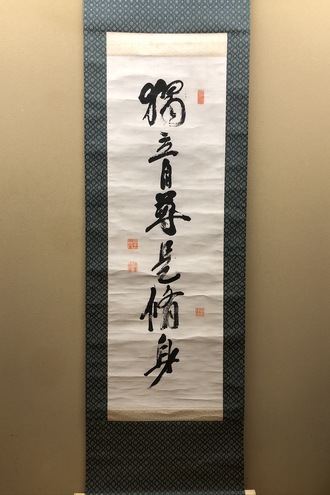 獨立自尊是脩身